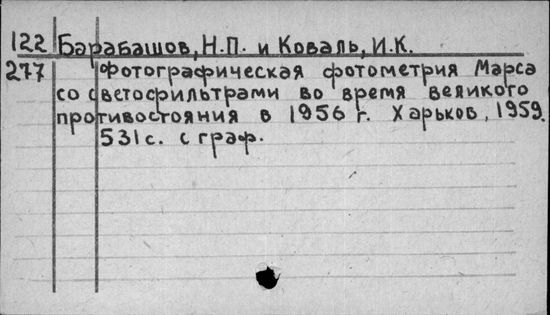 122 Барабашов, Н.П. и Коваль, И.К.
277 Фотографическая фотометрия Марса
со светофильтрами во время великого
противостояния в 1956 г. Харьков, 1959.
531 с. с граф.